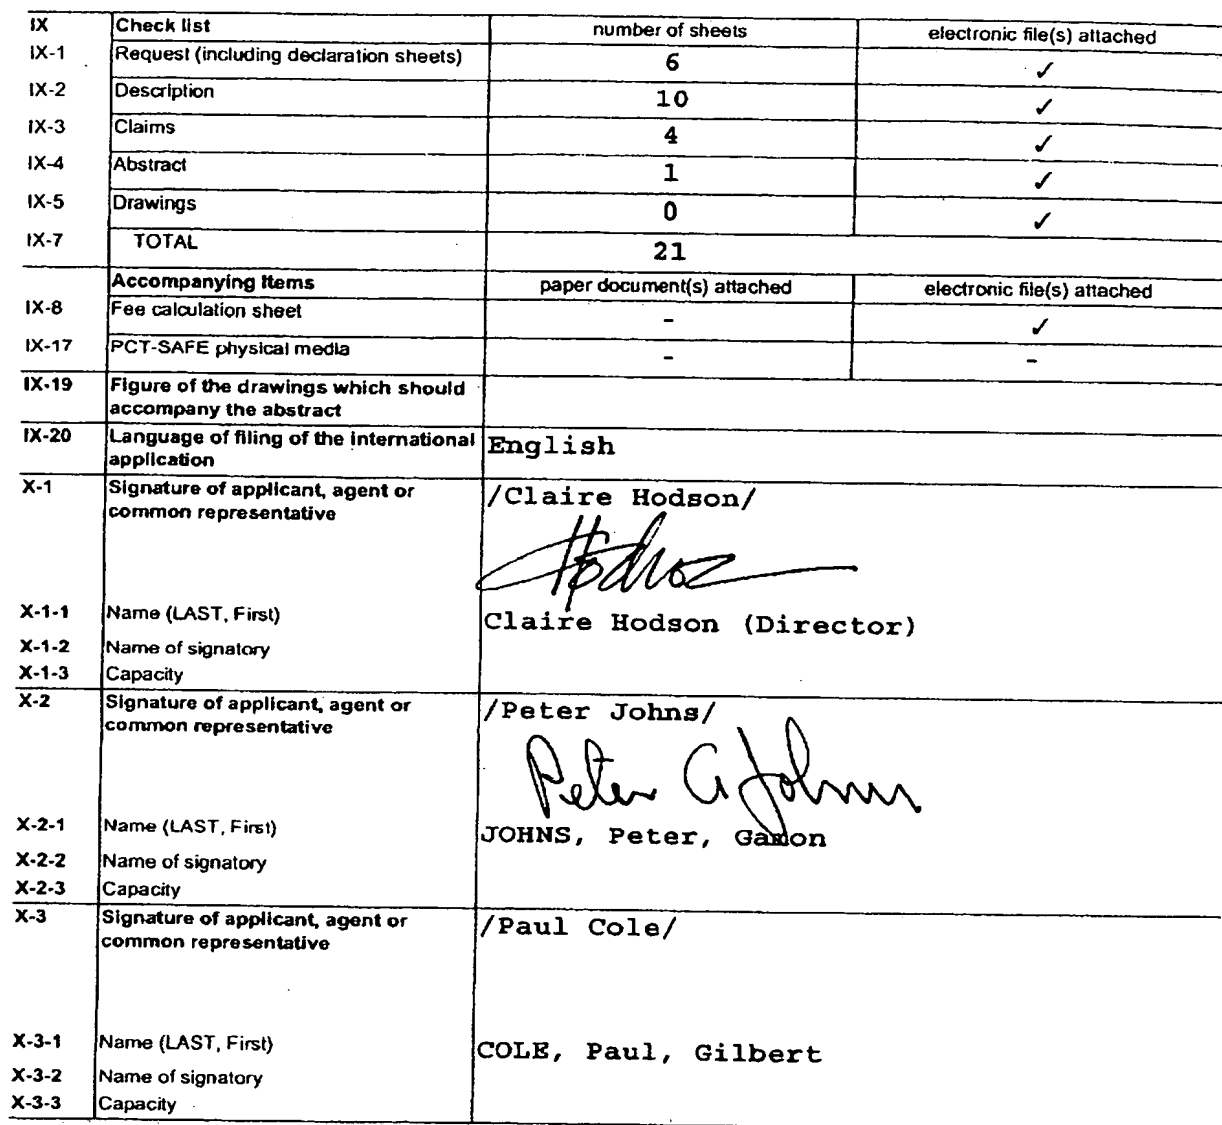 IX Check list number of sheets electronic file(s) attached
IX-1 Request (including declaration sheets) 6 ✓
IX-2 Description 10 ✓
IX-3 Claims 4 ✓
IX-4 Abstract 1 ✓
IX-5 Drawings 0 ✓
IX-7 TOTAL 21
Accompanying Items paper document(s) attached electronic file(s) attached
IX-8 Fee calculation sheet - ✓
IX-17 PCT-SAFE physical media - -
IX-19 Figure of the drawings which should
accompany the abstract
IX-20 Language of filing of the international English
application
X-1 Signature of applicant, agent or /Claire Hodson/
common representative
Hodson
X-1-1 Name (LAST, First) Claire Hodson (Director)
X-1-2 Name of signatory
X-1-3 Capacity
X-2 Signature of applicant, agent or /Peter Johns/
common representative
Peter G Johns
X-2-1 Name (LAST, First) JOHNS, Peter, Gamon
X-2-2 Name of signatory
X-2-3 Capacity
X-3 Signature of applicant, agent or /Paul Cole/
common representative
X-3-1 Name (LAST, First) COLE, Paul, Gilbert
X-3-2 Name of signatory
X-3-3 Capacity